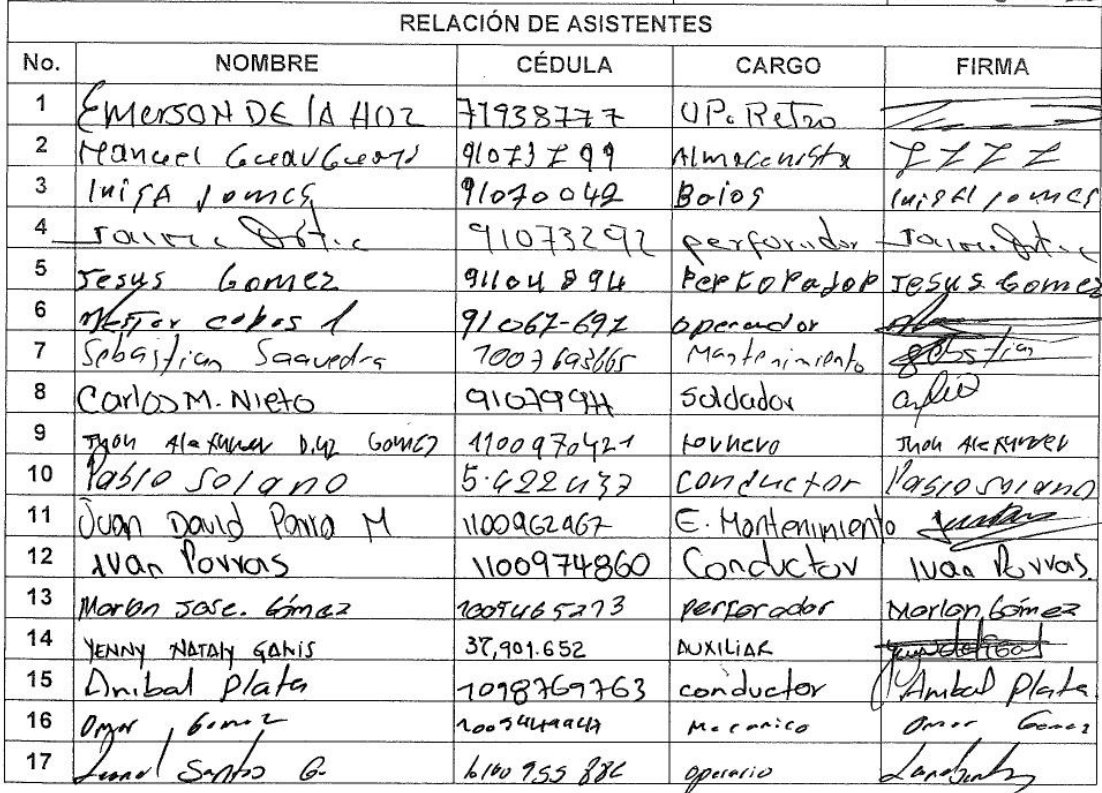 RELACIÓN DE ASISTENTES
No. NOMBRE CÉDULA CARGO FIRMA
1 EMERSON DE LA HOZ 71938777 OP. Retro
2 Manuel 91073799 Almacenista
3 luis A Jomes 91070042 Baios luis A Jomes
4 Jaime 91073292 perforador Jaime
5 Jesus Gomez 91104894 PerFoRadoR Jesus Gomez
6 Nestor cobos 91067-697 operador
7 Sebastian Saavedra 1007693665 Mantenimiento Sebastian
8 Carlos M. Nieto soldador
9 Jhon Alexander Diaz Gomez 1100970421 tornero Jhon Alexander
10 Pablo Solano 5.422437 conductor Pablo solano
11 Juan David Parra M 1100962967 E. Mantenimiento
12 Ivan Porras 1100974860 Conductor Ivan Porras.
13 Marlon Jose. Gómez 1005465273 perforador Marlon Gómez
14 YENNY NATALY GALVIS 37,901.652 AUXILIAR
15 Anibal Plata 1098769763 conductor Anibal Plata
16 Omar Gomez Mecanico Omar Gomez
17 Santos G. operario